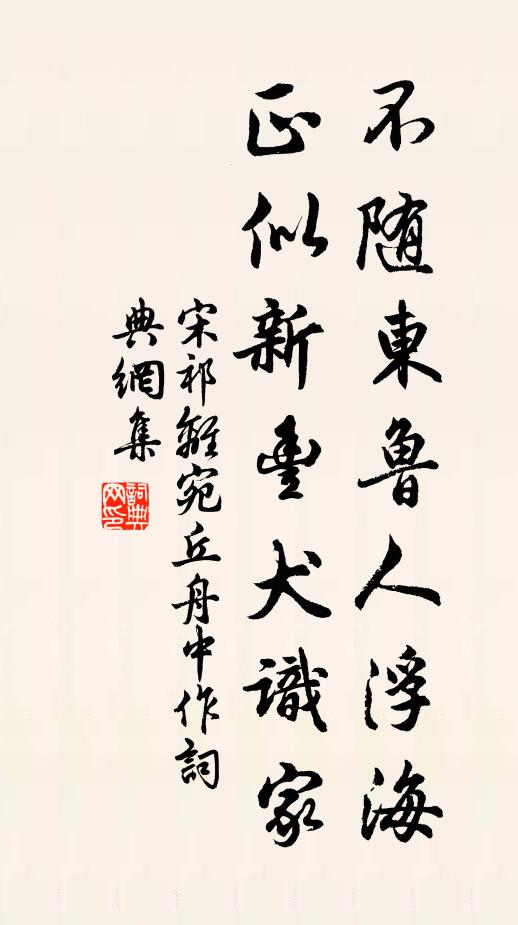 不随東魯人浮海
正似新豐犬識家
宋祁離宛丘舟中作詞
典網集
詞典网印